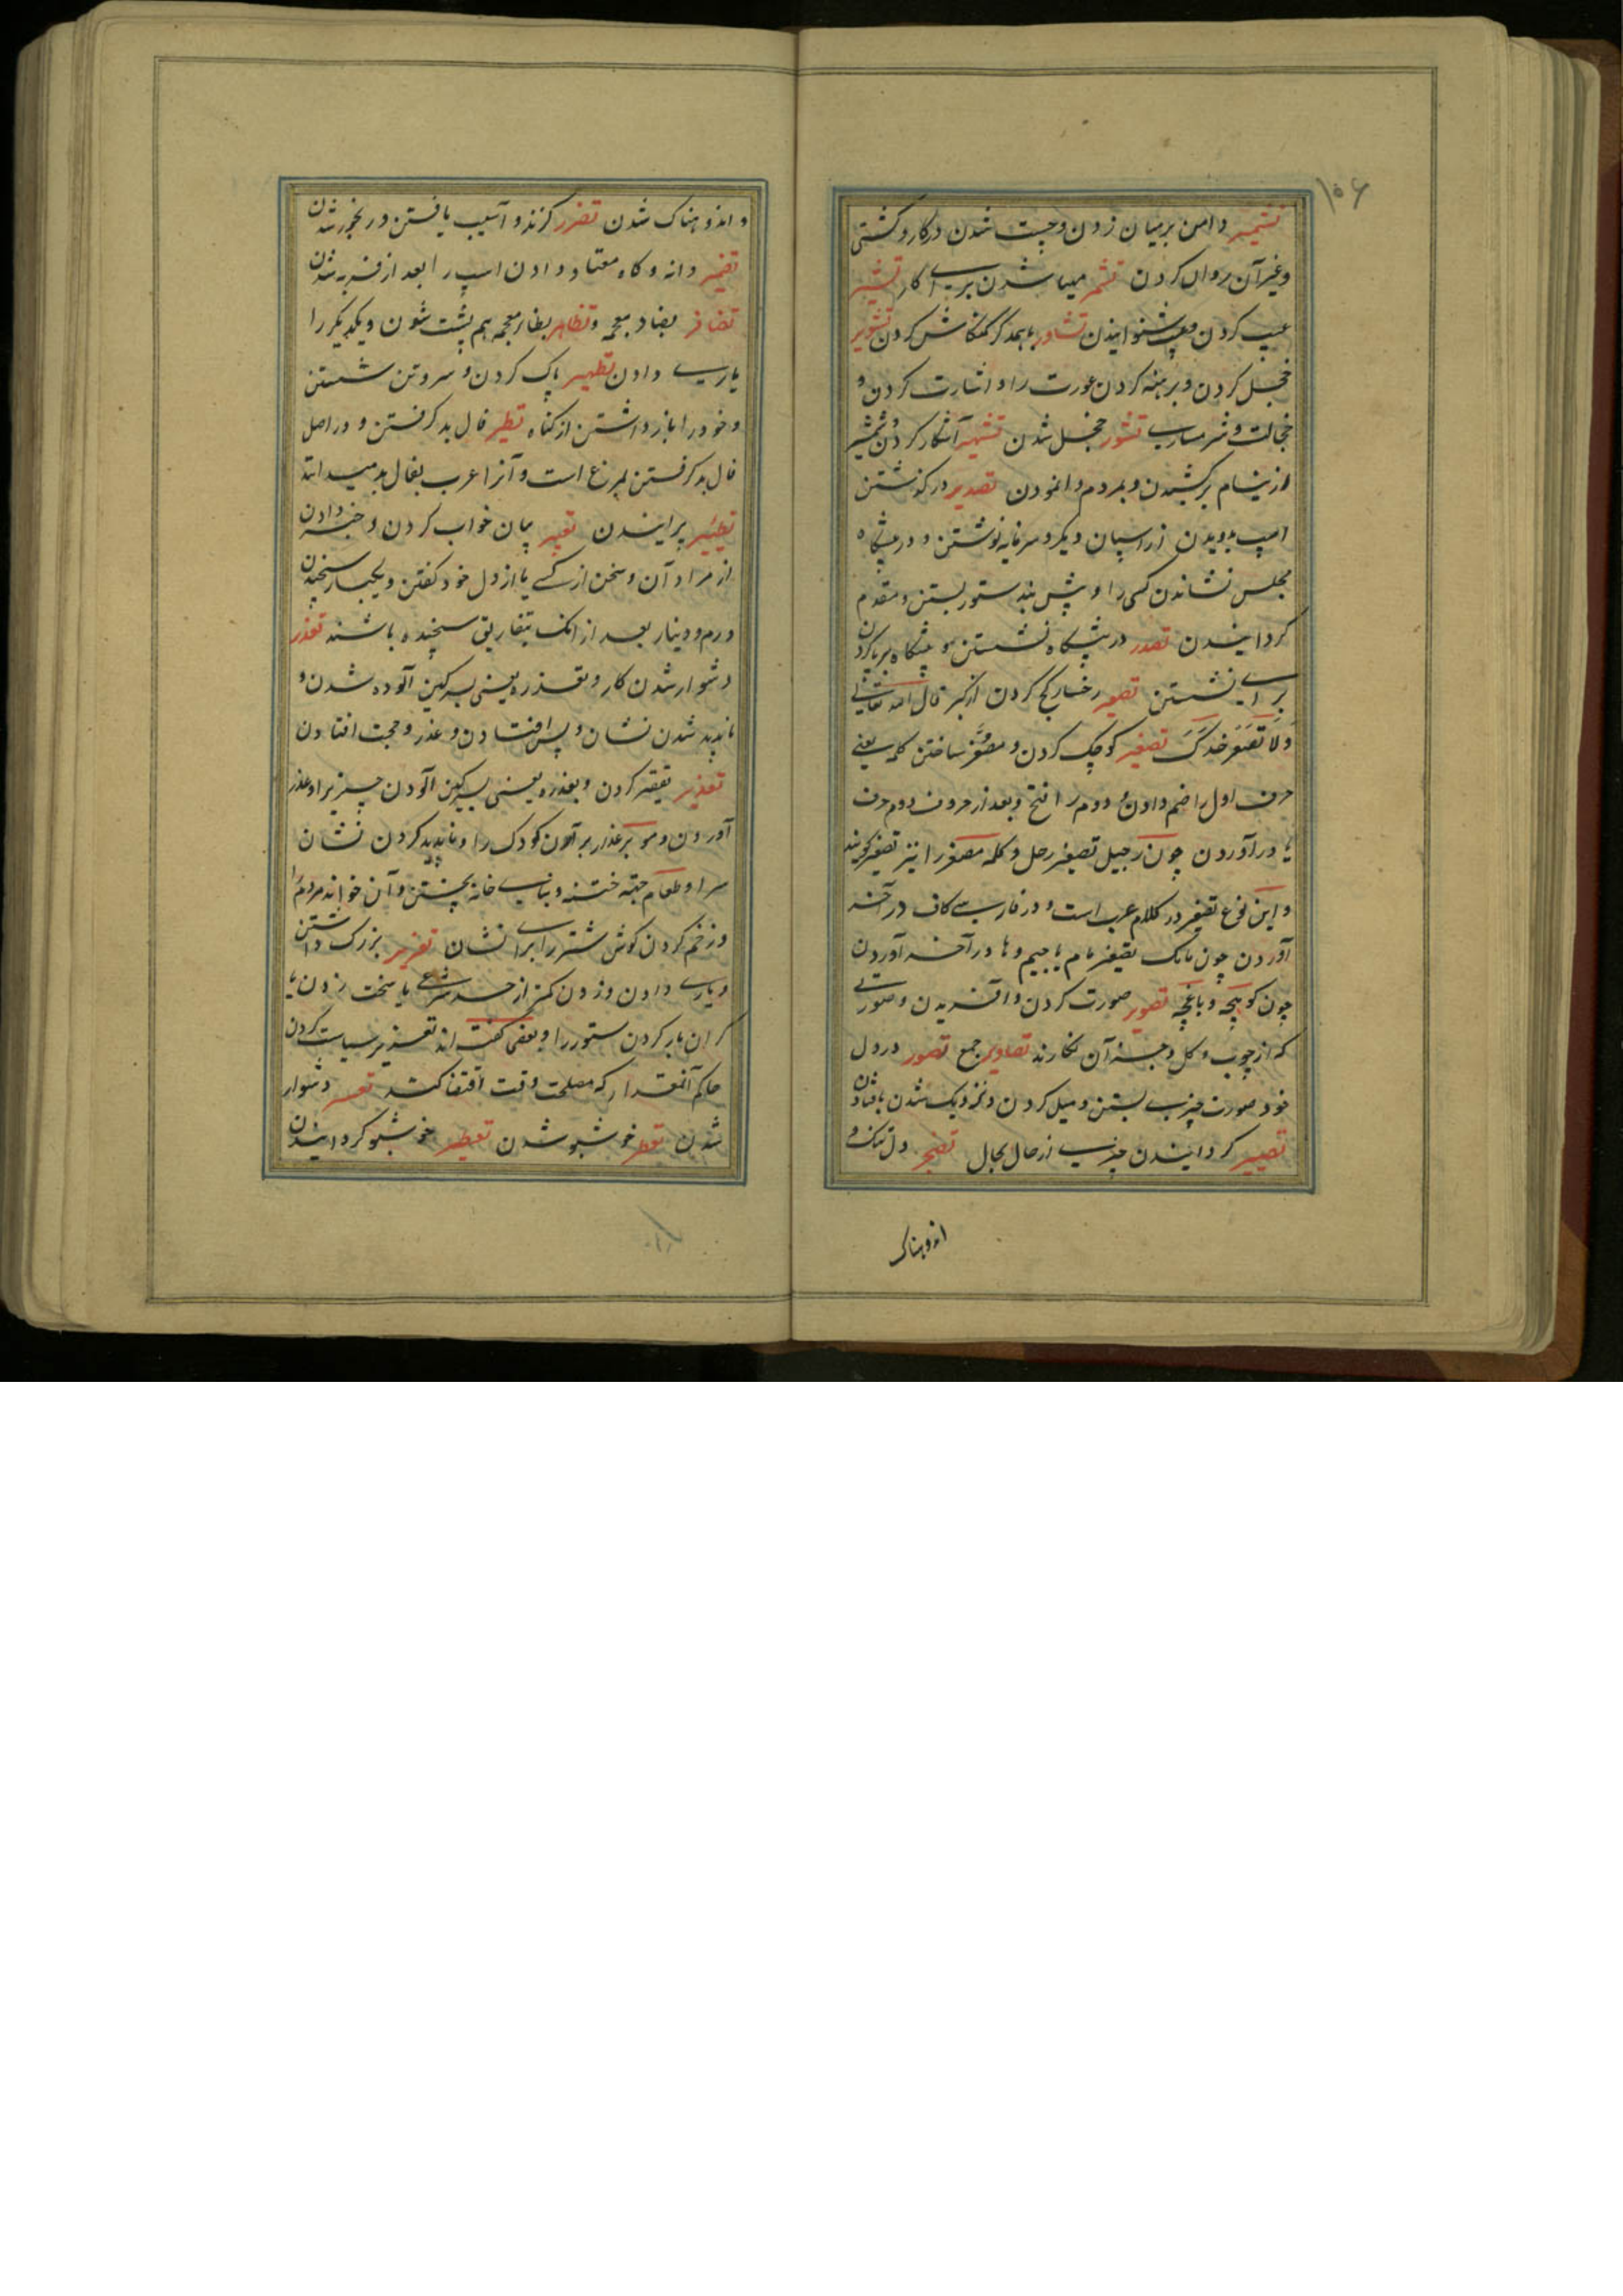 ۱۵۶
تشمیر دامن بر میان زدن و چست شدن در کار و کشتی
و غیر آن روان کردن تشمر مهیا شدن برای کار
عیب کردن و عیب شنوانیدن تشاور با همدگر کنکاش کردن تشویر
خجل کردن و برهنه کردن عورت را و اشارت کردن و
خجالت و شرمساری تشور خجل شدن تشهیر آشکار کردن و شمشیر
از نیام برکشیدن و بمردم وانمودن تصدیر در گذشتن
اسپ بدویدن از اسپان دیگر و سرنامه نوشتن و در پیشگاه
مجلس نشاندن کسی را و پیش بند ستور بستن و مقدم
گردانیدن تصدر در پیشگاه نشستن و پیشگاه برپا کردن
برای نشستن تصعیر رخسار کج کردن از کبر قال الله تعالی
وَلَا تُصَعِّر خَدَّکَ تصغیر کوچک کردن و مصغر ساختن کلمه یعنی
حرف اول را ضم دادن و دوم را فتح و بعد از حروف دوم حرف
یا در آوردن چون رجیل تصغیر رجل و کلمه مصغر را نیز تصغیر گویند
و این نوع تصغیر در کلام عرب است و در فارسی کاف در آخر
آوردن چون مامک تصغیر مام یا جیم و ها در آخر آوردن
چون کوچچه و باغچه تصویر صورت کردن و آفریدن و صورتی
که از چوب و گل و جز آن نگارند تصاویر جمع تصور در دل
خود صورت چیزی بستن و میل کردن و نزدیک شدن بافتادن
تصییر گردانیدن چیزی از حال بحال تضجر دل تنگ و
اندوهناک
و اندوهناک شدن تضرر گزند و آسیب یافتن و رنجور شدن
تضمیر دانه و کاه معتاد دادن اسپ را بعد از فربه شدن
تضافر بضاد معجمه و تظاهر بظاء معجمه هم پشت شدن و یکدیگر را
یاری دادن تطهیر پاک کردن و سر و تن شستن
و خود را باز داشتن از گناه تطیر فال بد گرفتن و در اصل
فال بد گرفتن بمرغ است و آنرا عرب بفال بد میدانند
تطییر پرانیدن تعبیر بیان خواب کردن و خبر دادن
از مراد آن و سخن از کسی یا از دل خود گفتن و یکبار سنجیدن
درم و دینار بعد از انک بتفاریق سنجیده باشند تعذر
دشوار شدن کار و تقذر یعنی بسرگین آلوده شدن و
ناپدید شدن نشان و پس افتادن و عذر و حجت افتادن
تعذیر تقصیر کردن و بعذره یعنی بسرگین آلودن چیزیرا و عذر
آوردن و موی بر عذار بر آمدن کودک را و ناپدید کردن نشان
سرا و طعام جهة ختنه و بنای خانه پختن و آن خواندن مردم را
و زخم کردن گوش شتر را برای نشان تعزیر بزرگ داشتن
و یاری دادن و زدن کمتر از حد شرعی یا سخت زدن یا
گران بار کردن ستور را و بعضی گفته اند تعزیر سیاست کردن
حاکم آنمقدار که مصلحت وقت اقتضا کند تعسر دشوار
شدن تعطر خوشبو شدن تعطیر خوشبو گردانیدن